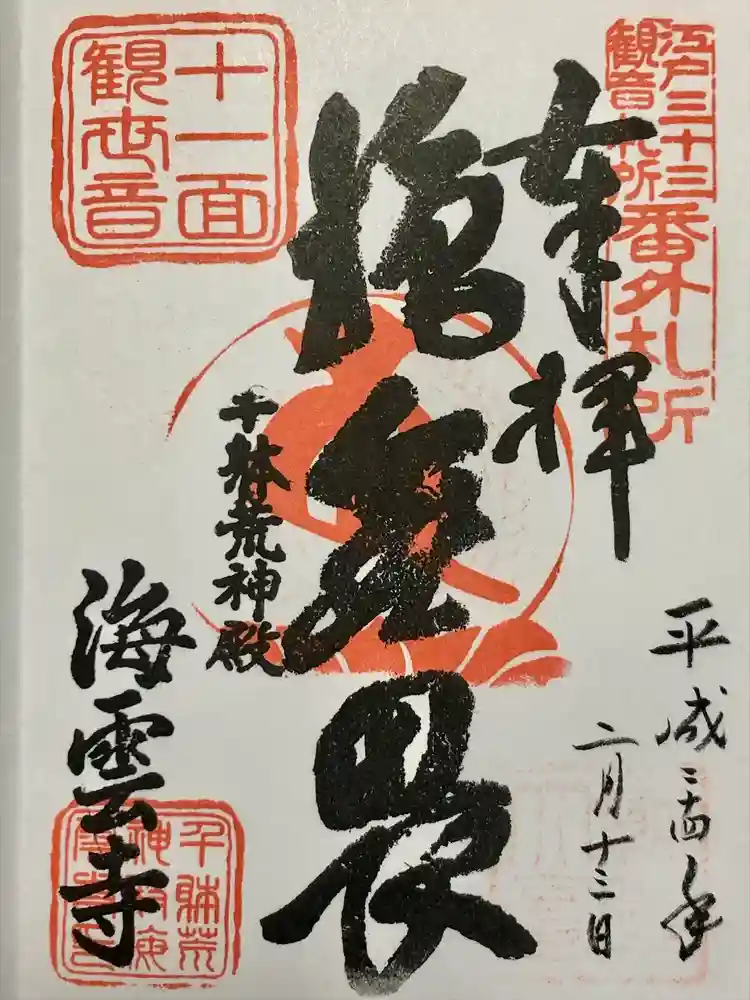 江戸三十三
観音札所
番外札所
奉拝
平成二十四年
二月十三日
施無畏
十一面
観世音
千躰荒神殿
海雲寺
千躰荒
神殿海